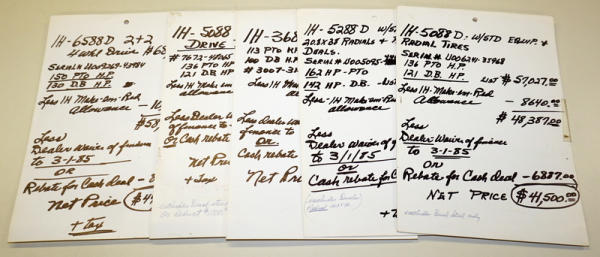 IH-6588D 2+2
4 Whl Drive #68
Serial #
150 PTO H.P.
130 D.B. H.P.
Less IH Make-em-Red
Allowance
$58,
Less
Dealer Waiver of finance
to 3-1-85
OR
Rebate for Cash deal - 6
Net Price $4
+ tax
IH-5088
DRIVE
136 PTO H.P
121 D.B. HP
Less IH Make-em
Allowance
Less Dealer W
of finance to
Or Cash rebate
Net Pric
+ Tax
IH-368
113 PTO H.P.
100 DB H.P
Less IH Make-em
Allowance
Less Dealer
Waiver of finance
to
OR
Cash rebate
Net Pric
IH-5288D W/S
20.8X38 Radials &
Duals.
162 HP-PTO
142 HP-D.B.
Less IH Make-em Red
Allowance
Less
Dealer Waiver of
to 3/1/85
OR
Cash rebate for C
+
IH-5088D - W/STD EQUIP. &
RADIAL TIRES
136 PTO H.P.
121 D.B. H.P. LIST $57,027.00
Less IH-Make-em-Red
Allowance - 8640.00
$48,387.00
Less
Dealer Waiver of finance
to 3-1-85
OR
Rebate for Cash deal - 6887.00
NET PRICE $41,500.00